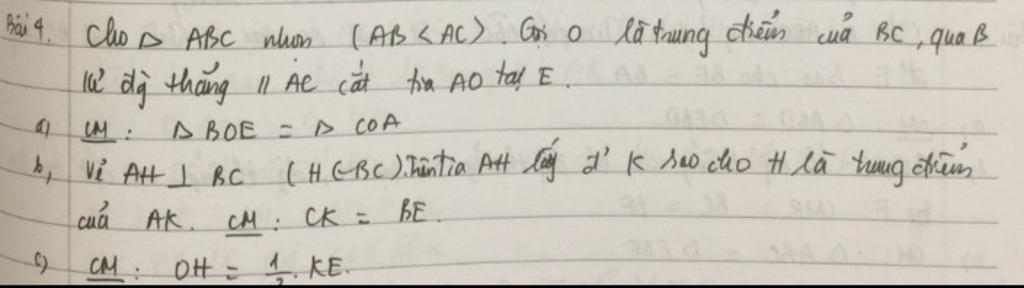 Bài 4. Cho Δ ABC nhọn (AB < AC). Gọi O là trung điểm của BC, qua B
kẻ đg thẳng // AC cắt tia AO tại E.
a) CM: Δ BOE = Δ COA
b, Vẽ AH ⊥ BC (H ∈ BC). Trên tia AH lấy đ' K sao cho H là trung điểm
của AK. CM: CK = BE.
c) CM: OH = 1/2. KE.